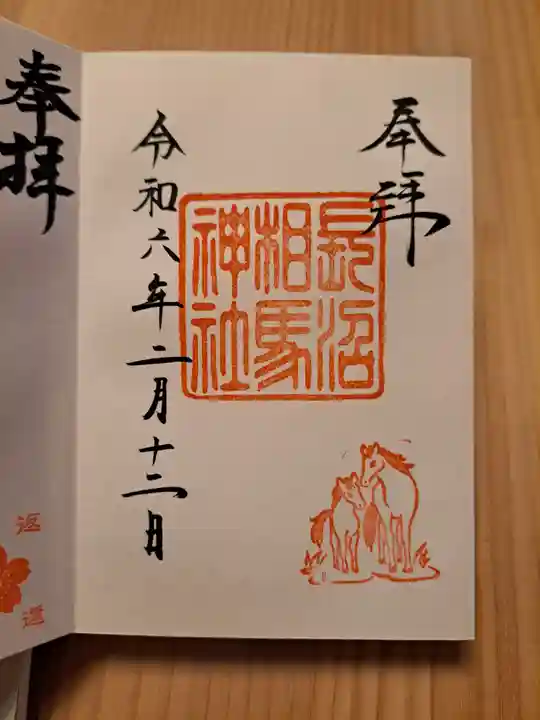 奉拝
長沼
相馬
神社
令和六年二月十二日
奉拝
返
還